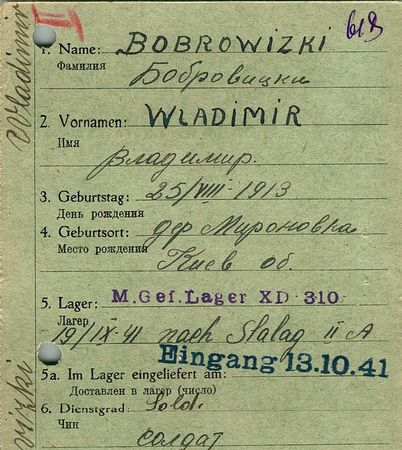 II
613
1. Name: BOBROWIZKI
Фамилия
Бобровицки
2. Vornamen: WLADIMIR
Имя
Владимир.
3. Geburtstag: 25/VIII 1913
День рождения
4. Geburtsort: дер Мироновка
Место рождения
Киев об.
5. Lager: M.Gef.Lager XD 310
Лагер
19/IX 41 nach Stalag II A
Eingang 13.10.41
5a. Im Lager eingeliefert am:
Доставлен в лагер (число)
6. Dienstgrad: Sold.
Чин
солдат
Wladimir
vizki